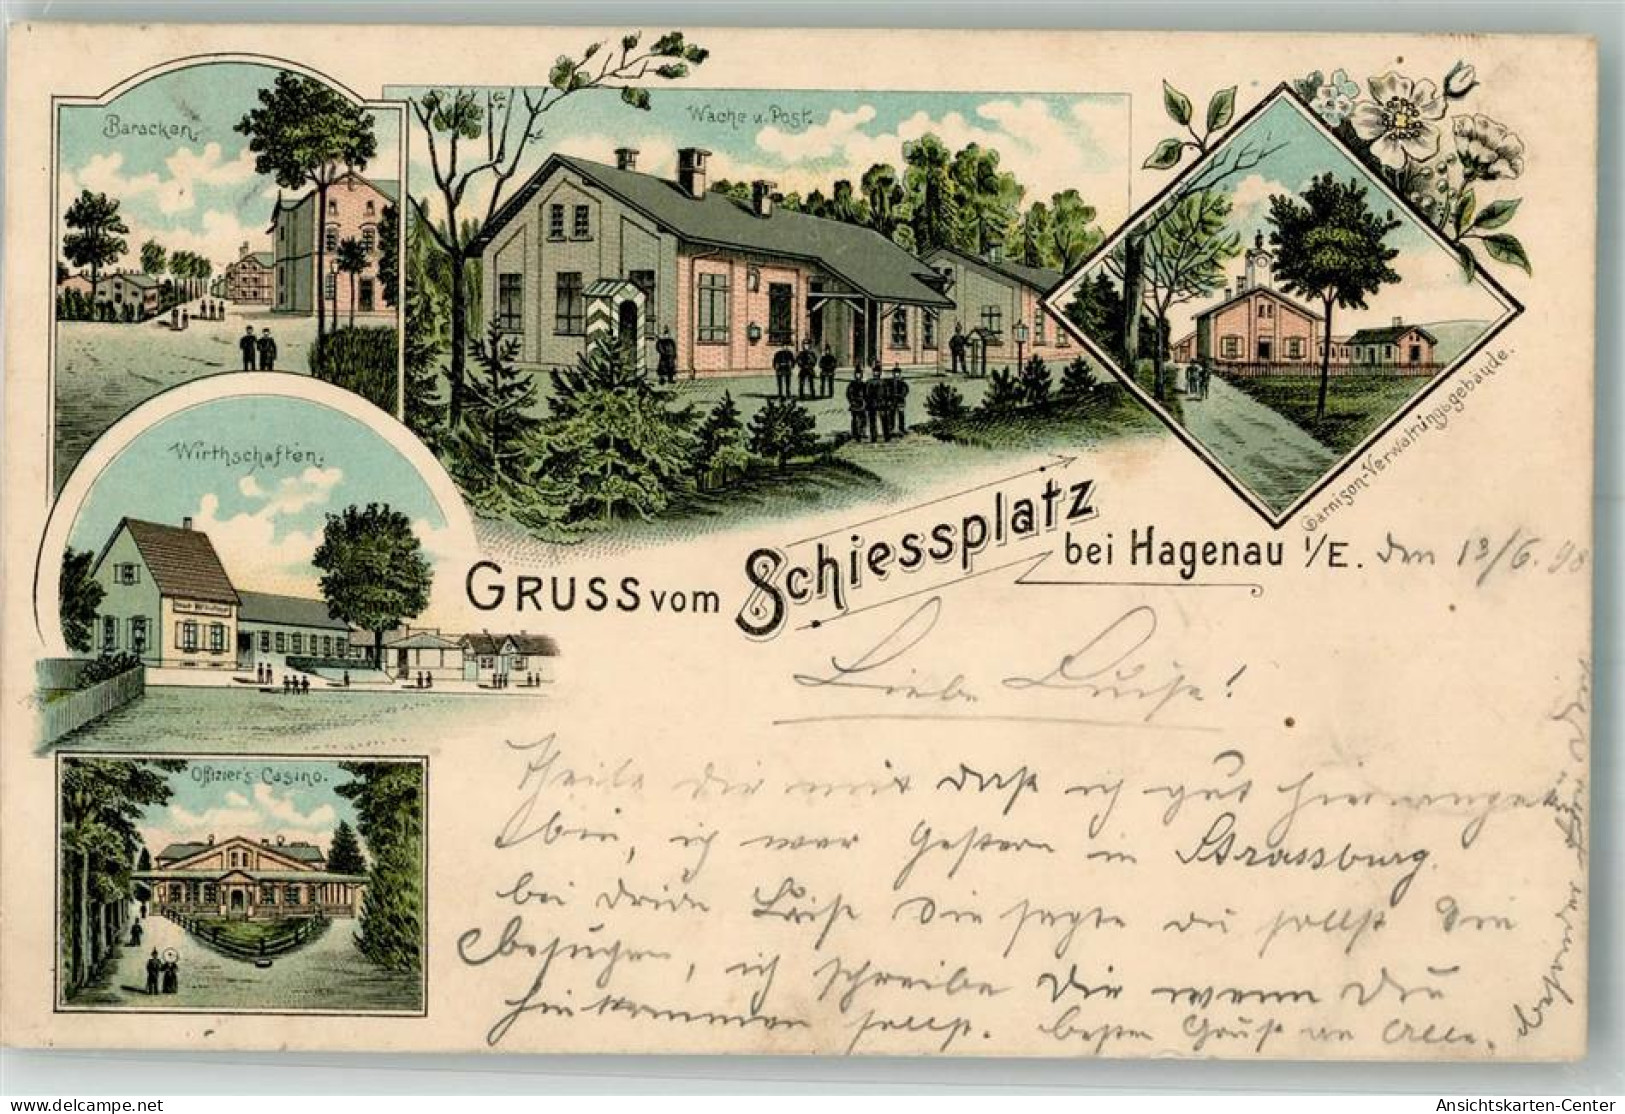 Baracken.
Wache u. Post.
Wirthschaften.
Garnison-Verwaltungsgebäude.
Offizier's-Casino.
GRUSS vom Schiessplatz
bei Hagenau i/E. den 13/6. 98
Liebe Luise!
Theile dir mit daß ich gut hier
bin, ich war Gestern in Strassburg.
bei Sie sagte du sollst Sie
besuchen, ich schreibe Dir wenn Du
hinkommen sollst. besten Gruß an Alle.
delcampe.net
Ansichtskarten-Center